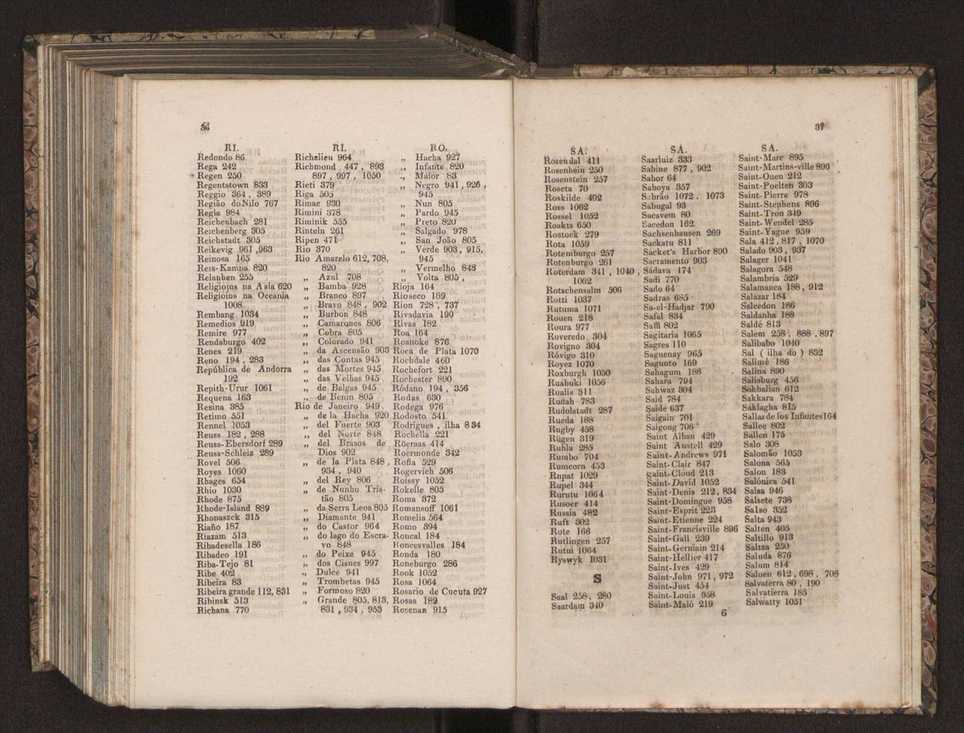 RI.
Redondo 86
Rega 242
Regen 250
Regentstown 833
Reggio 364 , 389
Região do Nilo 767
Regla 984
Reichenbach 281
Reichenberg 305
Reichstadt 305
Reikevig 961 ,963
Reinosa 165
Reis-Kamna 820
Relanben 255
Religiojns na Asia 620
Religioius na Oceania
1008
Rembang 1034
Remedios 919
Remire 977
Rendsburgo 402
Renes 219
Reno 194 , 283
República de Andorra
192
Repith-Urur 1061
Requena 163
Resina 385
Retimo 551
Rennel 1053
Reuss 182 , 288
Reuss-Ebersdorf 289
Reuss-Schleiz 289
Rovel 506
Royes 1060
Rhages 654
Rhio 1030
Rhode 875
Rhode-Island 889
Rhonaszek 315
Riaño 187
Riazam 513
Ribadesella 186
Ribadeo 191
Riba-Tejo 81
Ribe 402
Ribeira 83
Ribeira grande 112, 831
Ribinsk 513
Richana 770
RI.
Richelieu 964
Richmond 447 , 893
897 , 997 , 1050
Rieti 379
Riga 505
Rimac 930
Rimini 378
Riminik 555
Rinteln 261
Ripen 471
Rio 370
Rio Amarelo 612, 708,
820
„ Azul 708
„ Bamba 928
„ Branco 897
„ Bravo 848 , 902
„ Burbon 848
„ Camarones 806
„ Cobra 805
„ Colorado 941
„ da Ascensão 903
„ das Contas 945
„ das Mortes 945
„ das Velhas 945
„ de Balgas 945
„ de Benin 805
Rio de Janeiro 949
„ de la Hacha 920
„ del Fuerte 903
„ del Norte 848
„ del Brasos de
Dios 902
„ de la Plata 848 ,
934 , 940
„ del Rey 806
„ de Nunho Tris-
tão 805
„ da Serra Leoa 805
„ Diamante 941
„ do Castor 964
„ do lago do Escra-
vo 848
„ do Peixe 945
„ dos Cisnes 997
„ Dulce 941
„ Trombetas 945
„ Formoso 820
„ Grande 805, 813,
831 , 934 , 953
RO.
„ Hacha 927
„ Infante 820
„ Maior 83
„ Negro 941 , 926 ,
945
„ Nun 805
„ Pardo 945
„ Preto 820
„ Salgado 978
„ San João 805
„ Verde 903 , 915,
945
„ Vermelho 848
„ Volta 805 ,
Rioja 164
Rioseco 169
Rion 728 , 737
Rivadavia 190
Rivas 182
Roa 164
Roanoke 876
Roca de Plata 1070
Rochdale 460
Rochefort 221
Rochester 890
Ródano 194 , 356
Rodas 630
Rodega 976
Rodosto 541
Rodrigues , ilha 834
Rochella 221
Röeraas 414
Roermonde 342
Rofia 529
Rogervich 506
Roissy 1052
Rokelle 805
Roma 372
Romansoff 1061
Romelia 564
Romo 394
Roncal 184
Roncesvalles 184
Ronda 180
Roneburgo 286
Rook 1052
Rosa 1064
Rosario de Cucuta 927
Rosas 189
Rosenan 915
37
SA.
Rosendal 411
Rosenhein 250
Rosenstein 257
Roseta 70
Roskilde 402
Ross 1062
Rossel 1052
Roskta 650
Rostock 279
Rota 1059
Rotemburgo 257
Rotenburgo 261
Roterdam 341 , 1040 ,
1062
Rotschensalm 506
Rotti 1037
Rutuma 1071
Rouen 218
Roura 977
Roveredo 304
Rovigno 304
Róvigo 310
Royez 1070
Roxburgh 1050
Ruabuki 1056
Rualis 311
Rudah 783
Rudolstadt 287
Rueda 188
Rugby 458
Rügen 319
Ruhla 285
Rumbo 704
Rumcorn 453
Rupat 1029
Rupel 344
Rurutu 1064
Rusoer 414
Russia 482
Ruft 302
Rute 166
Rutlingen 257
Rutui 1064
Ryswyk 1031
S
Saal 258 , 280
Saardam 340
SA.
Saarluiz 333
Sabine 877 , 902
Sabor 64
Saboya 357
Sabrão 1072 . 1073
Sabugal 93
Sacavem 80
Sacedon 162
Sachsenhausen 269
Sackatu 811
Sacket's Harbor 890
Sacramento 903
Sádava 174
Sadi 770
Sado 64
Sadras 685
Sa-el-Hadjar 790
Safal 834
Saffi 802
Sagitaria 1065
Sagres 110
Saguenay 965
Sagunto 169
Sahagum 188
Sahara 794
Sahwaz 304
Said 784
Saide 637
Saigain 701
Saigong 706
Saint Alban 429
Saint Austell 429
Saint-Andrews 971
Saint-Clair 847
Saint-Cloud 213
Saint-David 1052
Saint-Denis 212, 834
Saint-Domingue 958
Saint-Esprit 223
Saint-Etienne 224
Saint-Francisville 896
Saint-Gall 239
Saint-Germain 214
Saint-Hellier 417
Saint-Ives 429
Saint-John 971, 972
Saint-Just 454
Saint-Louis 958
Saint-Maló 219
SA.
Saint-Marc 895
Saint-Martins-ville 896
Saint-Ouen 212
Saint-Poelten 303
Saint-Pierre 978
Saint-Stephens 896
Saint-Tron 349
Saint-Wendel 285
Saint-Yague 959
Sala 412 , 817 , 1070
Salado 903 , 937
Salager 1041
Salagora 548
Salambria 529
Salamanca 188 , 912
Salazar 184
Salcedon 186
Saldanha 188
Saldé 813
Salem 258 , 888 , 897
Salibabo 1040
Sal ( ilha do ) 832
Salimé 186
Salina 890
Salisburg 456
Sakhalien 612
Sakkara 784
Saklagha 815
Sallas de los Infantes 164
Sallee 802
Sallen 175
Salo 308
Salomão 1053
Salona 565
Salon 183
Salónica 541
Salsa 946
Salsete 738
Salso 352
Salta 943
Salten 405
Saltillo 913
Saltza 250
Saluda 876
Salum 814
Saluen 612 , 698 , 708
Salvaterra 80 , 190
Salvatierra 185
Salwatty 1051
6